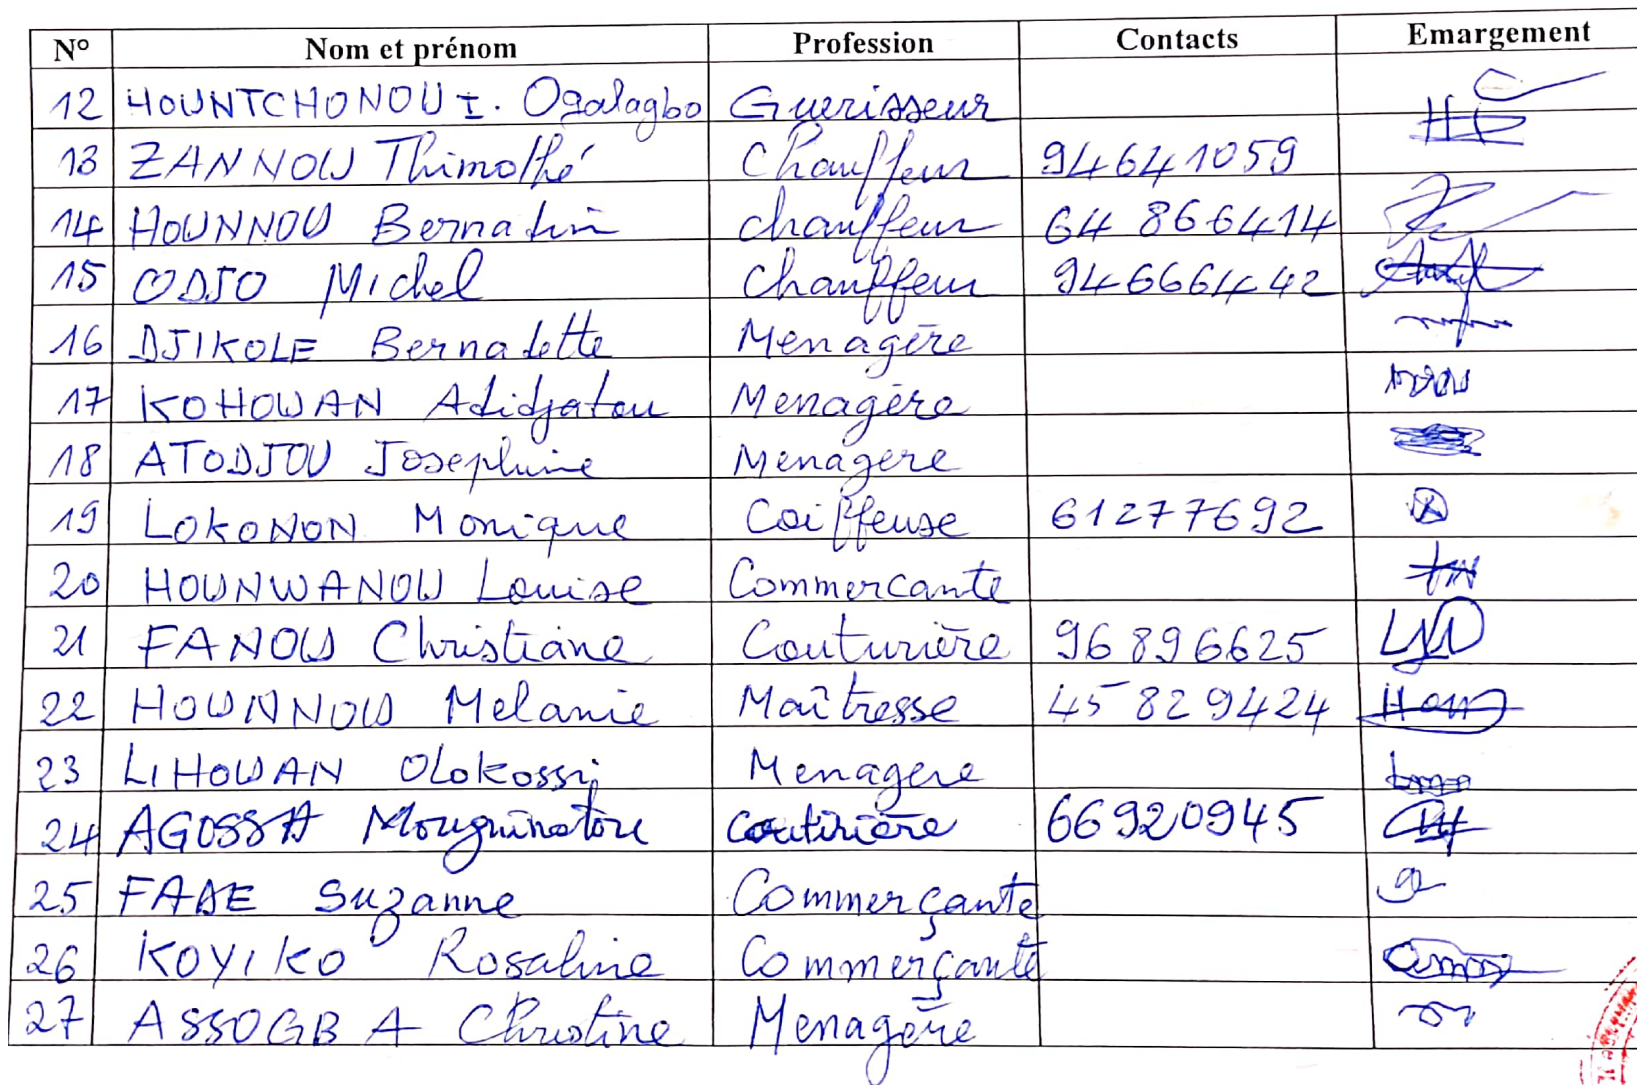 N° Nom et prénom Profession Contacts Emargement
12 HOUNTCHONOU I. Ogalagbo Guerisseur
13 ZANNOU Thimothé Chauffeur 94641059
14 HOUNNOU Bernatin chauffeur 64 866414
15 ODJO Michel Chauffeur 94666442
16 DJIKOLE Bernadette Menagère
17 KOHOUAN Adidjatou Menagère
18 ATODJOU Josephine Menagere
19 LOKONON Monique Coiffeuse 61277692
20 HOUNWANOU Louise Commercante
21 FANOU Christiane Couturière 96896625
22 HOUNNOU Melanie Maîtresse 45829424
23 LIHOUAN Olokossi Menagere
24 AGOSSA Mouguinatou couturière 66920945
25 FADE Suzanne Commerçante
26 KOYIKO Rosaline Commerçante
27 ASSOGBA Christine Menagère